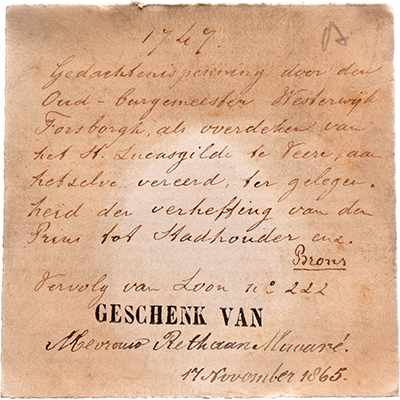 1747.
Gedachtenispenning door den
Oud-burgemeester Westerwijk
Forsborgh, als overdeken van
het St. Lucasgilde te Veere, aan
hetselve vereerd, ter gelegen-
heid der verheffing van den
Prins tot Stadhouder enz.
Brons
Vervolg van Loon No 222
GESCHENK VAN
Mevrouw Rethaan Macaré.
17 November 1865.